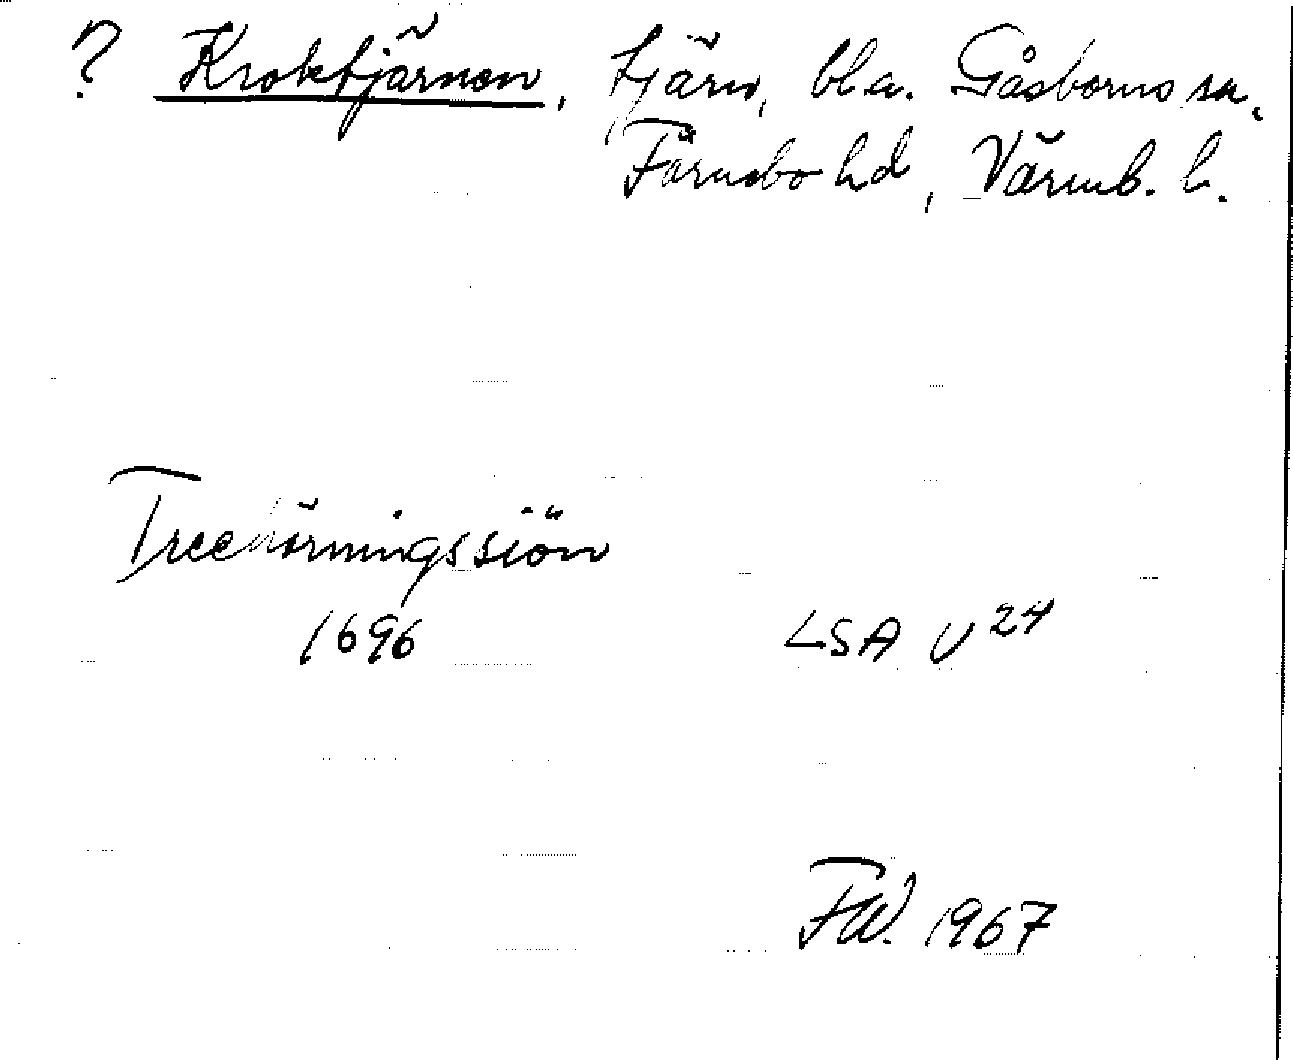 ? Kroktjärnen, tjärn, bl a. Gåsborns sn,
Färnebo hd, Värml. l.
Treehörningssiön
1696 LSA U 24
FW. 1967